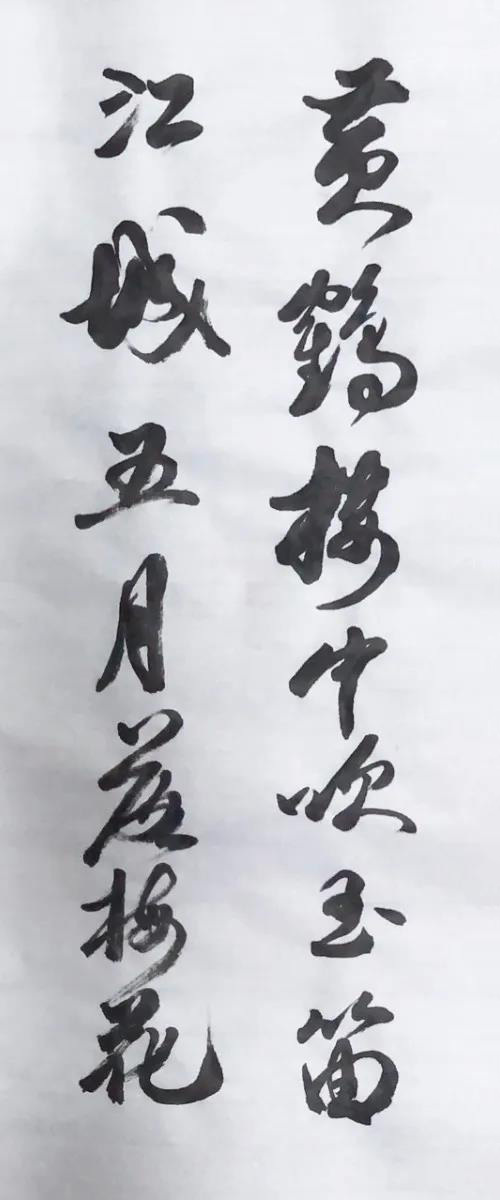 黄鹤楼中吹玉笛
江城五月落梅花